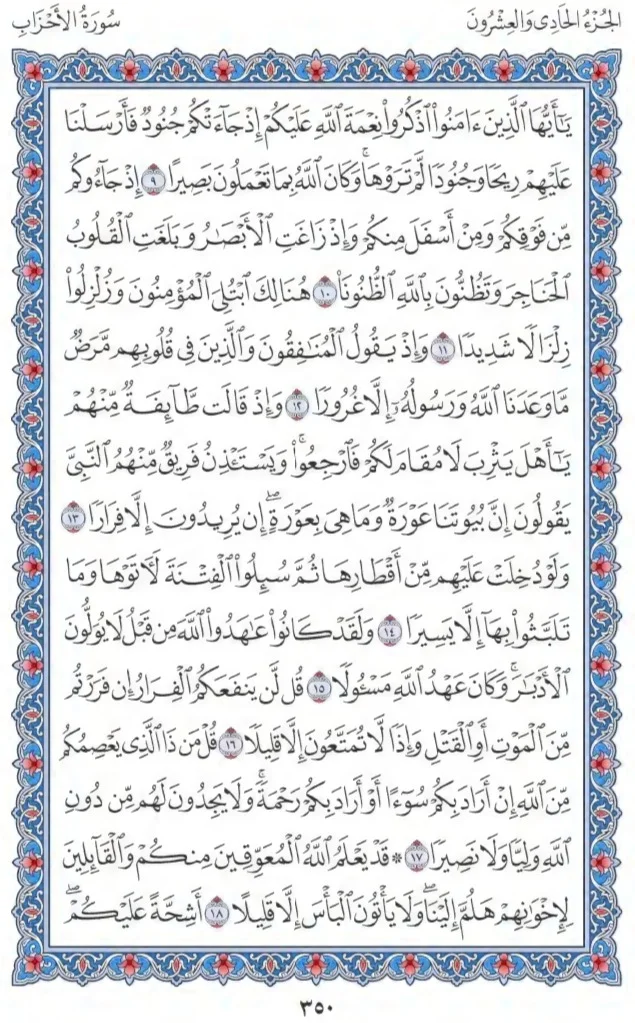 سُورَةُ الأَحْزَابِ
الجُزْءُ الحَادِي وَالعِشْرُونَ
يَٰٓأَيُّهَا ٱلَّذِينَ ءَامَنُوا۟ ٱذْكُرُوا۟ نِعْمَةَ ٱللَّهِ عَلَيْكُمْ إِذْ جَآءَتْكُمْ جُنُودٌ فَأَرْسَلْنَا
عَلَيْهِمْ رِيحًا وَجُنُودًا لَّمْ تَرَوْهَا ۚ وَكَانَ ٱللَّهُ بِمَا تَعْمَلُونَ بَصِيرًا ٩ إِذْ جَآءُوكُم
مِّن فَوْقِكُمْ وَمِنْ أَسْفَلَ مِنكُمْ وَإِذْ زَاغَتِ ٱلْأَبْصَٰرُ وَبَلَغَتِ ٱلْقُلُوبُ
ٱلْحَنَاجِرَ وَتَظُنُّونَ بِٱللَّهِ ٱلظُّنُونَا۠ ١٠ هُنَالِكَ ٱبْتُلِىَ ٱلْمُؤْمِنُونَ وَزُلْزِلُوا۟
زِلْزَالًا شَدِيدًا ١١ وَإِذْ يَقُولُ ٱلْمُنَٰفِقُونَ وَٱلَّذِينَ فِى قُلُوبِهِم مَّرَضٌ
مَّا وَعَدَنَا ٱللَّهُ وَرَسُولُهُۥٓ إِلَّا غُرُورًا ١٢ وَإِذْ قَالَت طَّآئِفَةٌ مِّنْهُمْ
يَٰٓأَهْلَ يَثْرِبَ لَا مُقَامَ لَكُمْ فَٱرْجِعُوا۟ ۚ وَيَسْتَـْٔذِنُ فَرِيقٌ مِّنْهُمُ ٱلنَّبِىَّ
يَقُولُونَ إِنَّ بُيُوتَنَا عَوْرَةٌ وَمَا هِىَ بِعَوْرَةٍ ۖ إِن يُرِيدُونَ إِلَّا فِرَارًا ١٣
وَلَوْ دُخِلَتْ عَلَيْهِم مِّنْ أَقْطَارِهَا ثُمَّ سُئِلُوا۟ ٱلْفِتْنَةَ لَءَاتَوْهَا وَمَا
تَلَبَّثُوا۟ بِهَآ إِلَّا يَسِيرًا ١٤ وَلَقَدْ كَانُوا۟ عَٰهَدُوا۟ ٱللَّهَ مِن قَبْلُ لَا يُوَلُّونَ
ٱلْأَدْبَٰرَ ۚ وَكَانَ عَهْدُ ٱللَّهِ مَسْـُٔولًا ١٥ قُل لَّن يَنفَعَكُمُ ٱلْفِرَارُ إِن فَرَرْتُم
مِّنَ ٱلْمَوْتِ أَوِ ٱلْقَتْلِ وَإِذًا لَّا تُمَتَّعُونَ إِلَّا قَلِيلًا ١٦ قُلْ مَن ذَا ٱلَّذِى يَعْصِمُكُم
مِّنَ ٱللَّهِ إِنْ أَرَادَ بِكُمْ سُوٓءًا أَوْ أَرَادَ بِكُمْ رَحْمَةً ۚ وَلَا يَجِدُونَ لَهُم مِّن دُونِ
ٱللَّهِ وَلِيًّا وَلَا نَصِيرًا ١٧ ۞ قَدْ يَعْلَمُ ٱللَّهُ ٱلْمُعَوِّقِينَ مِنكُمْ وَٱلْقَآئِلِينَ
لِإِخْوَٰنِهِمْ هَلُمَّ إِلَيْنَا ۖ وَلَا يَأْتُونَ ٱلْبَأْسَ إِلَّا قَلِيلًا ١٨ أَشِحَّةً عَلَيْكُمْ ۖ
٣٥٠